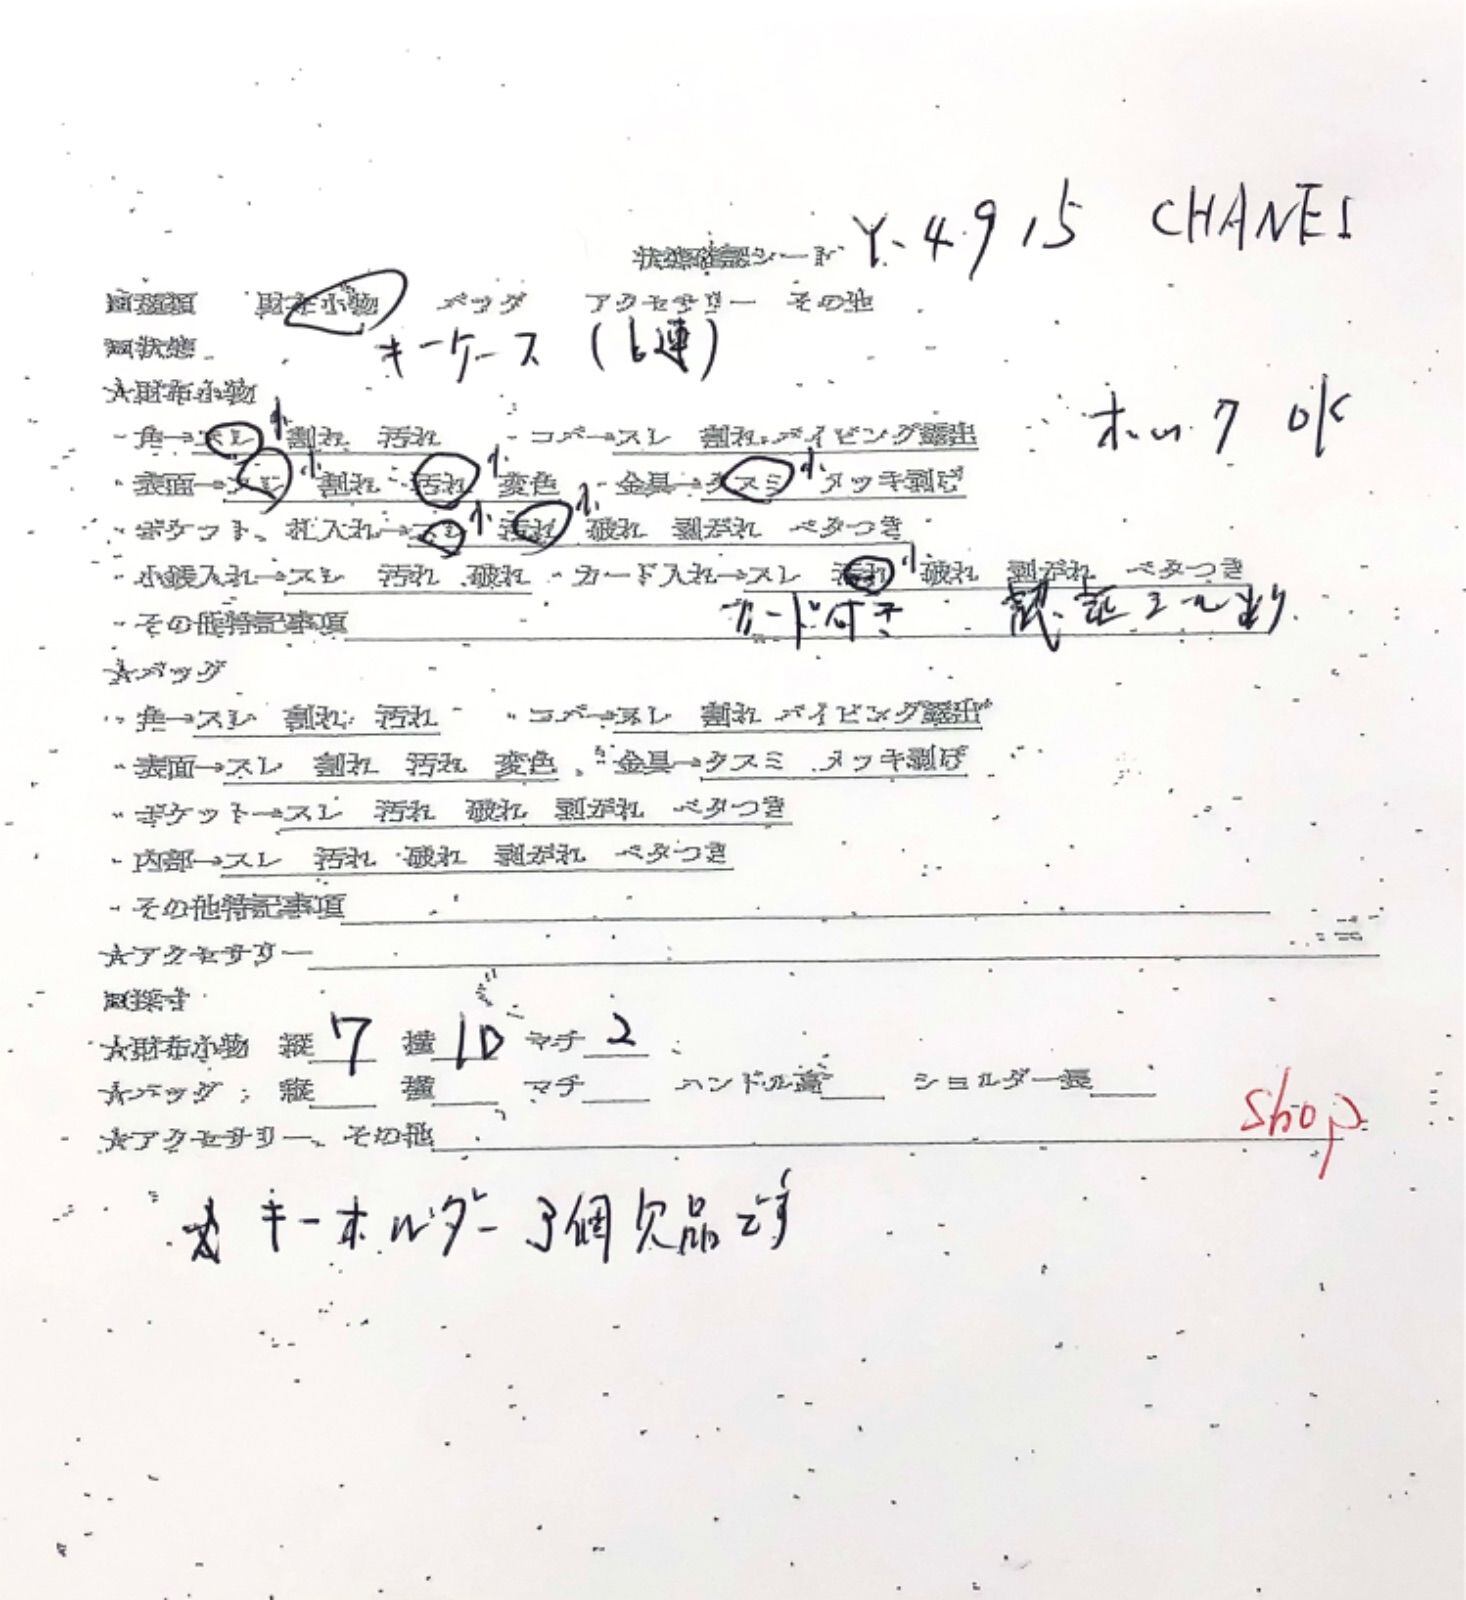 状態確認シート Y-4915 CHANEL
■種類 財布小物 バッグ アクセサリー その他
■状態 キーケース (6連)
★財布小物
ホック OK
・角→スレ 小 割れ 汚れ ・コバ→スレ 割れ パイピング露出
・表面→スレ 小 割れ 汚れ 小 変色 ・金具→クスミ 小 メッキ剥げ
・ポケット、札入れ→スレ 小 汚れ 小 破れ 剥がれ ベタつき
・小銭入れ→スレ 汚れ 破れ ・カード入れ→スレ 汚れ 小 破れ 剥がれ ベタつき
・その他特記事項 カード付き シール あり
★バッグ
・角→スレ 割れ 汚れ ・コバ→スレ 割れ パイピング露出
・表面→スレ 割れ 汚れ 変色 ・金具→クスミ メッキ剥げ
・ポケット→スレ 汚れ 破れ 剥がれ ベタつき
・内部→スレ 汚れ 破れ 剥がれ ベタつき
・その他特記事項
★アクセサリー
■採寸
★財布小物 縦 7 横 10 マチ 2
★バッグ 縦 横 マチ ハンドル高 ショルダー長
shop
★アクセサリー、その他
★キーホルダー3個欠品です